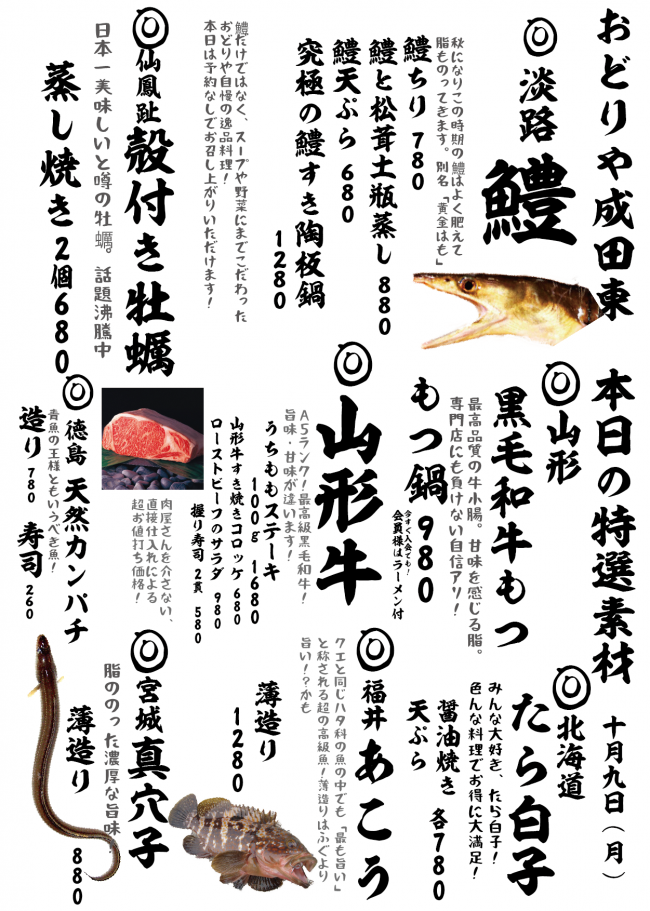 おどりや成田東
本日の特選素材
十月九日（月）
◎淡路
鱧
秋になりこの時期の鱧はよく肥えて
脂ものってきます。別名「黄金はも」
鱧ちり 780
鱧と松茸土瓶蒸し 880
鱧天ぷら 680
究極の鱧すき陶板鍋
1280
鱧だけではなく、スープや野菜にまでこだわった
おどりや自慢の逸品料理！
本日は予約なしでお召し上がりいただけます！
◎仙鳳趾
殻付き牡蠣
日本一美味しいと噂の牡蠣。話題沸騰中
蒸し焼き 2個680
◎山形
黒毛和牛もつ
最高品質の牛小腸。甘味を感じる脂。
専門店にも負けない自信アリ！
もつ鍋 980
今すぐ入会でも！
会員様はラーメン付
◎山形牛
A5ランク！最高級黒毛和牛！
旨味・甘味が違います！
うちももステーキ
100g 1680
山形牛すき焼きコロッケ 680
ローストビーフのサラダ 980
握り寿司 2貫 580
肉屋さんを介さない、
直接仕入れによる
超お値打ち価格！
◎徳島 天然カンパチ
青魚の王様ともいうべき魚！
造り 780 寿司 260
◎北海道
たら白子
みんな大好き、たら白子！
色んな料理でお得に大満足！
醤油焼き
天ぷら 各780
◎福井 あこう
クエと同じハタ科の魚の中でも「最も旨い」
と称される超の高級魚！薄造りはふぐより
旨い！？かも
薄造り
1280
◎宮城 真穴子
脂ののった濃厚な旨味
薄造り 880